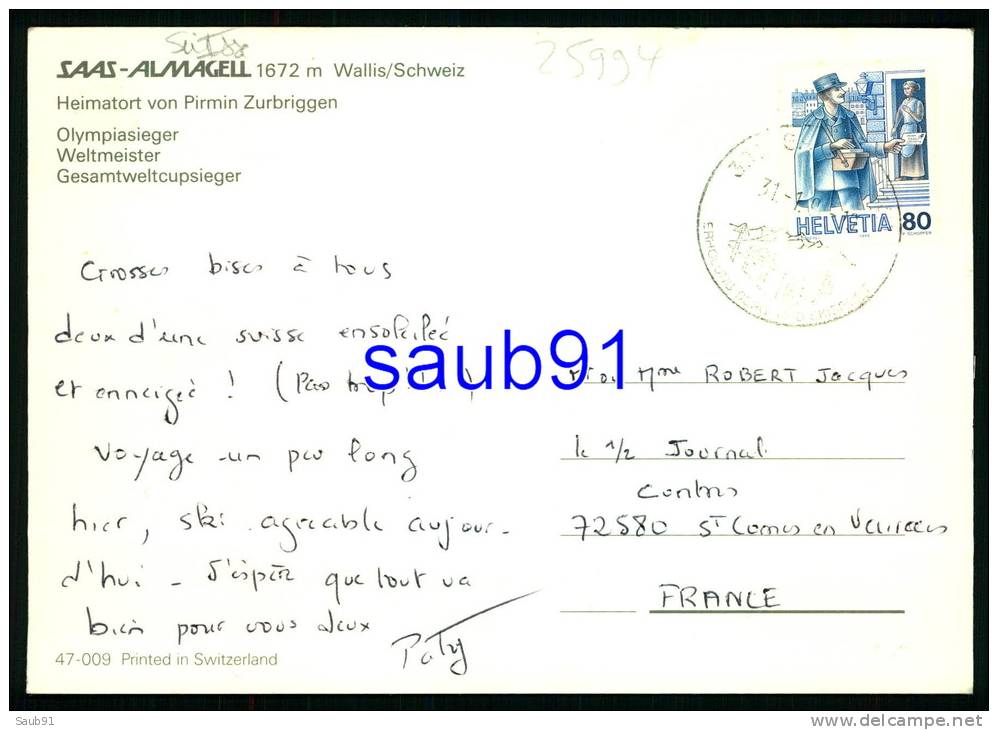 Suisse
25994
SAAS-ALMAGELL 1672 m Wallis/Schweiz
Heimatort von Pirmin Zurbriggen
Olympiasieger
Weltmeister
Gesamtweltcupsieger
HELVETIA 80
31-3
Grosses bises à tous
deux d'une suisse ensoleilée
et enneigée ! (Pas trop !!! )
saub91
Voyage un peu long
hier, ski agréable aujour-
d'hui - J'espère que tout va
bien pour vous deux
Paty
Mme ROBERT Jacques
le 1/2 Journal
72580 St
FRANCE
47-009 Printed in Switzerland
Saub91
www.delcampe.net